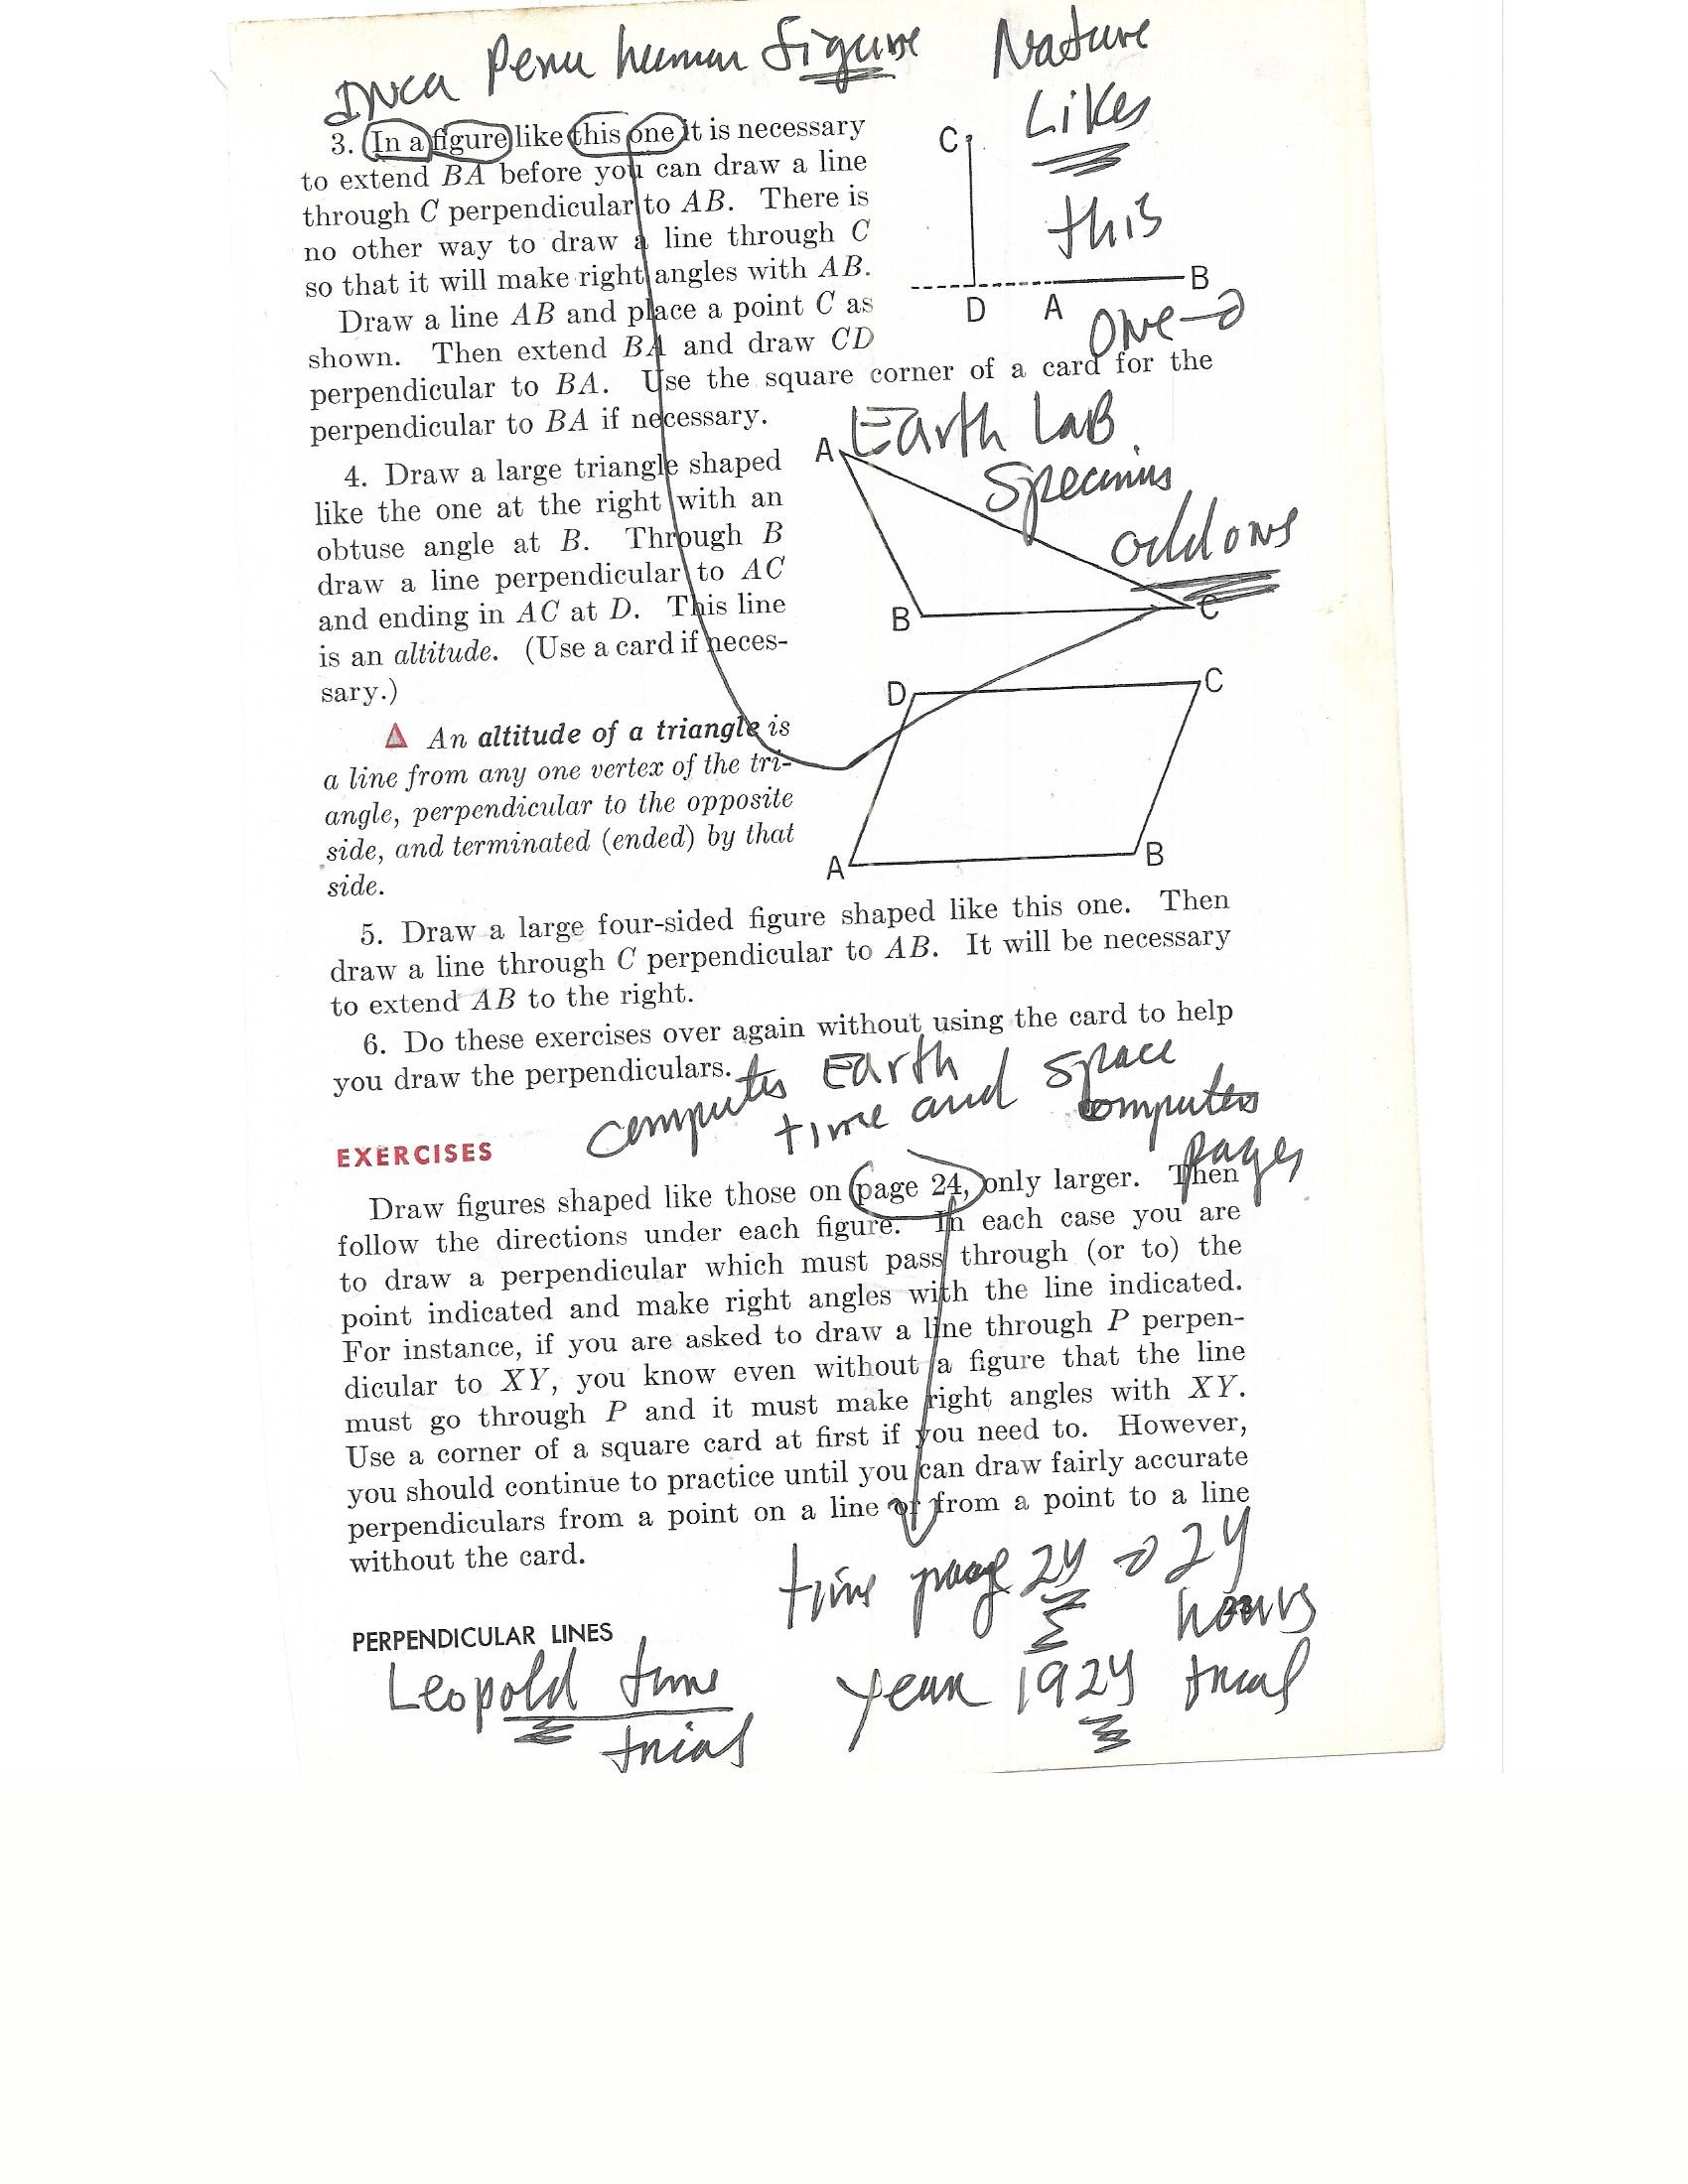 Inca Peru human figure Nature
Likes
this
one
3. In a figure like this one it is necessary
to extend BA before you can draw a line
through C perpendicular to AB. There is
no other way to draw a line through C
so that it will make right angles with AB.
Draw a line AB and place a point C as
shown. Then extend BA and draw CD
perpendicular to BA. Use the square corner of a card for the
perpendicular to BA if necessary.
C
D A B
Earth Lab
odd ones
4. Draw a large triangle shaped
like the one at the right with an
obtuse angle at B. Through B
draw a line perpendicular to AC
and ending in AC at D. This line
is an altitude. (Use a card if neces-
sary.)
A
B C
△ An altitude of a triangle is
a line from any one vertex of the tri-
angle, perpendicular to the opposite
side, and terminated (ended) by that
side.
D C
A B
5. Draw a large four-sided figure shaped like this one. Then
draw a line through C perpendicular to AB. It will be necessary
to extend AB to the right.
6. Do these exercises over again without using the card to help
you draw the perpendiculars.
computes Earth
time and space
computers
pages
EXERCISES
Draw figures shaped like those on page 24, only larger. Then
follow the directions under each figure. In each case you are
to draw a perpendicular which must pass through (or to) the
point indicated and make right angles with the line indicated.
For instance, if you are asked to draw a line through P perpen-
dicular to XY, you know even without a figure that the line
must go through P and it must make right angles with XY.
Use a corner of a square card at first if you need to. However,
you should continue to practice until you can draw fairly accurate
perpendiculars from a point on a line or from a point to a line
without the card.
time page 24 → 24
hours
PERPENDICULAR LINES
Leopold time
trial
year 1924 trial